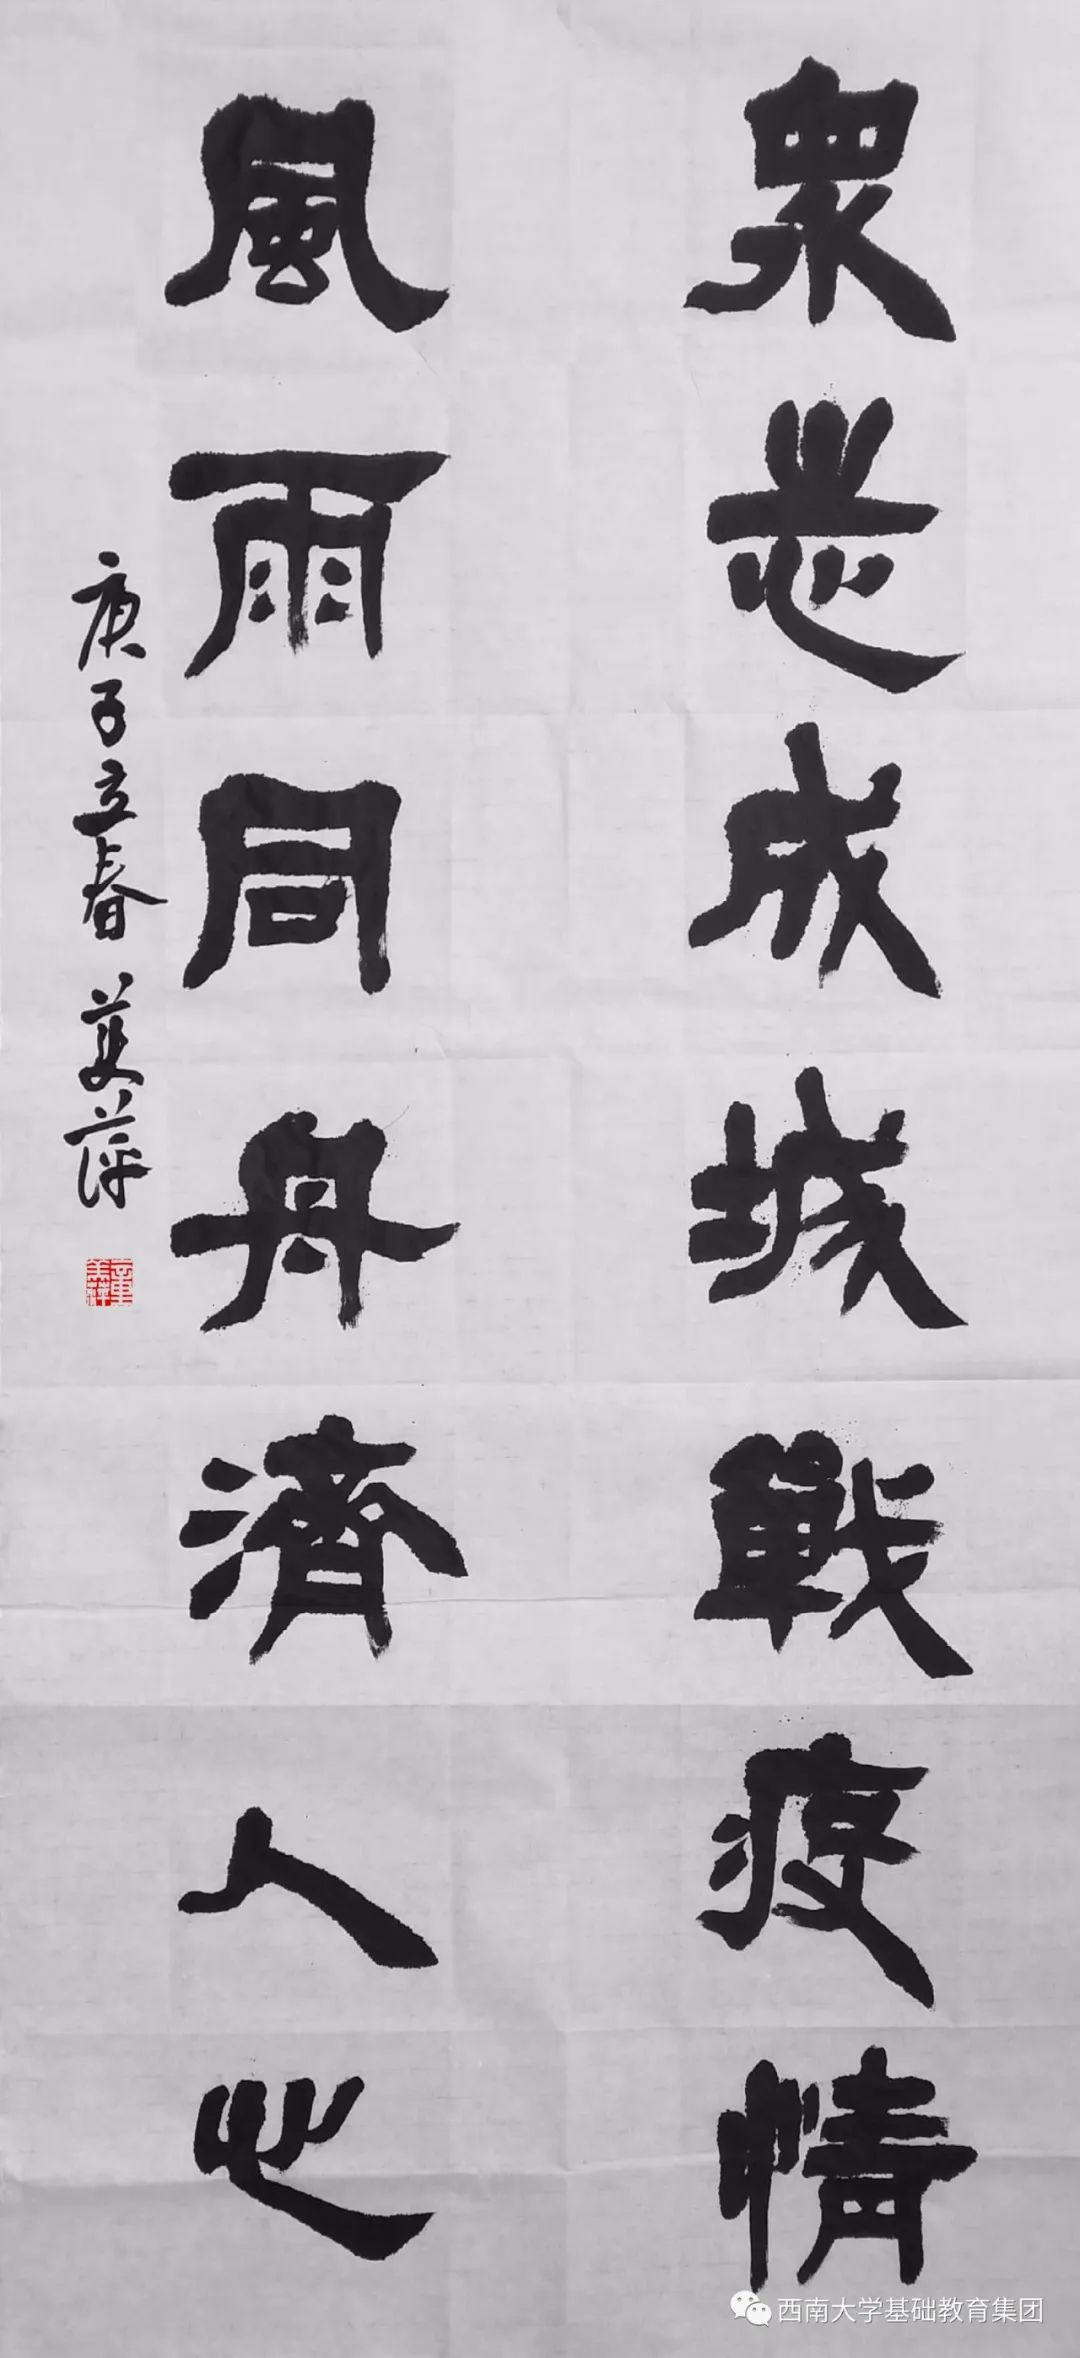 眾志成城戰疫情
風雨同舟濟人心
庚子立春 美萍
西南大学基础教育集团